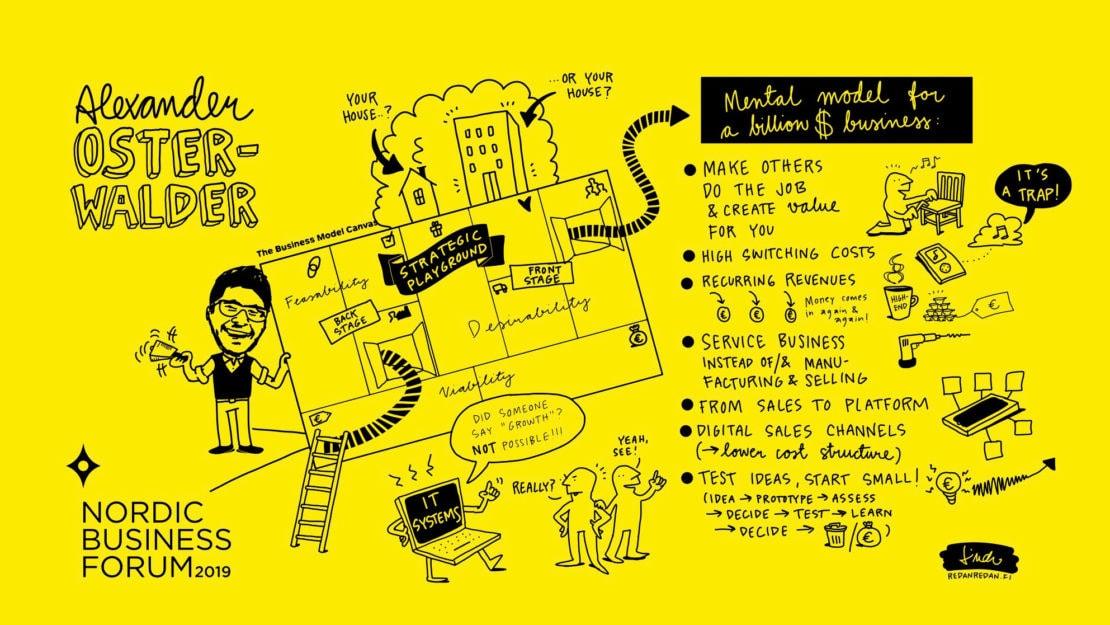 Alexander
OSTER-
WALDER
YOUR
HOUSE..?
...OR YOUR
HOUSE?
The Business Model Canvas
STRATEGIC
PLAYGROUND
FRONT
STAGE
BACK
STAGE
Feasability
Desirability
Viability
DID SOMEONE
SAY "GROWTH"?
NOT POSSIBLE!!!
IT
SYSTEMS
REALLY?
YEAH,
SEE!
NORDIC
BUSINESS
FORUM2019
Mental model for
a billion $ business:
● MAKE OTHERS
DO THE JOB
& CREATE value
FOR YOU
IT'S
A TRAP!
● HIGH SWITCHING COSTS
● RECURRING REVENUES
€ € €
Money comes
in again &
again!
HIGH-
END
€
● SERVICE BUSINESS
INSTEAD OF/& MANU-
FACTURING & SELLING
● FROM SALES TO PLATFORM
● DIGITAL SALES CHANNELS
(→lower cost structure)
● TEST IDEAS, START SMALL!
(IDEA → PROTOTYPE → ASSESS
→ DECIDE → TEST → LEARN
→ DECIDE → / € )
€
REDANREDAN.FI